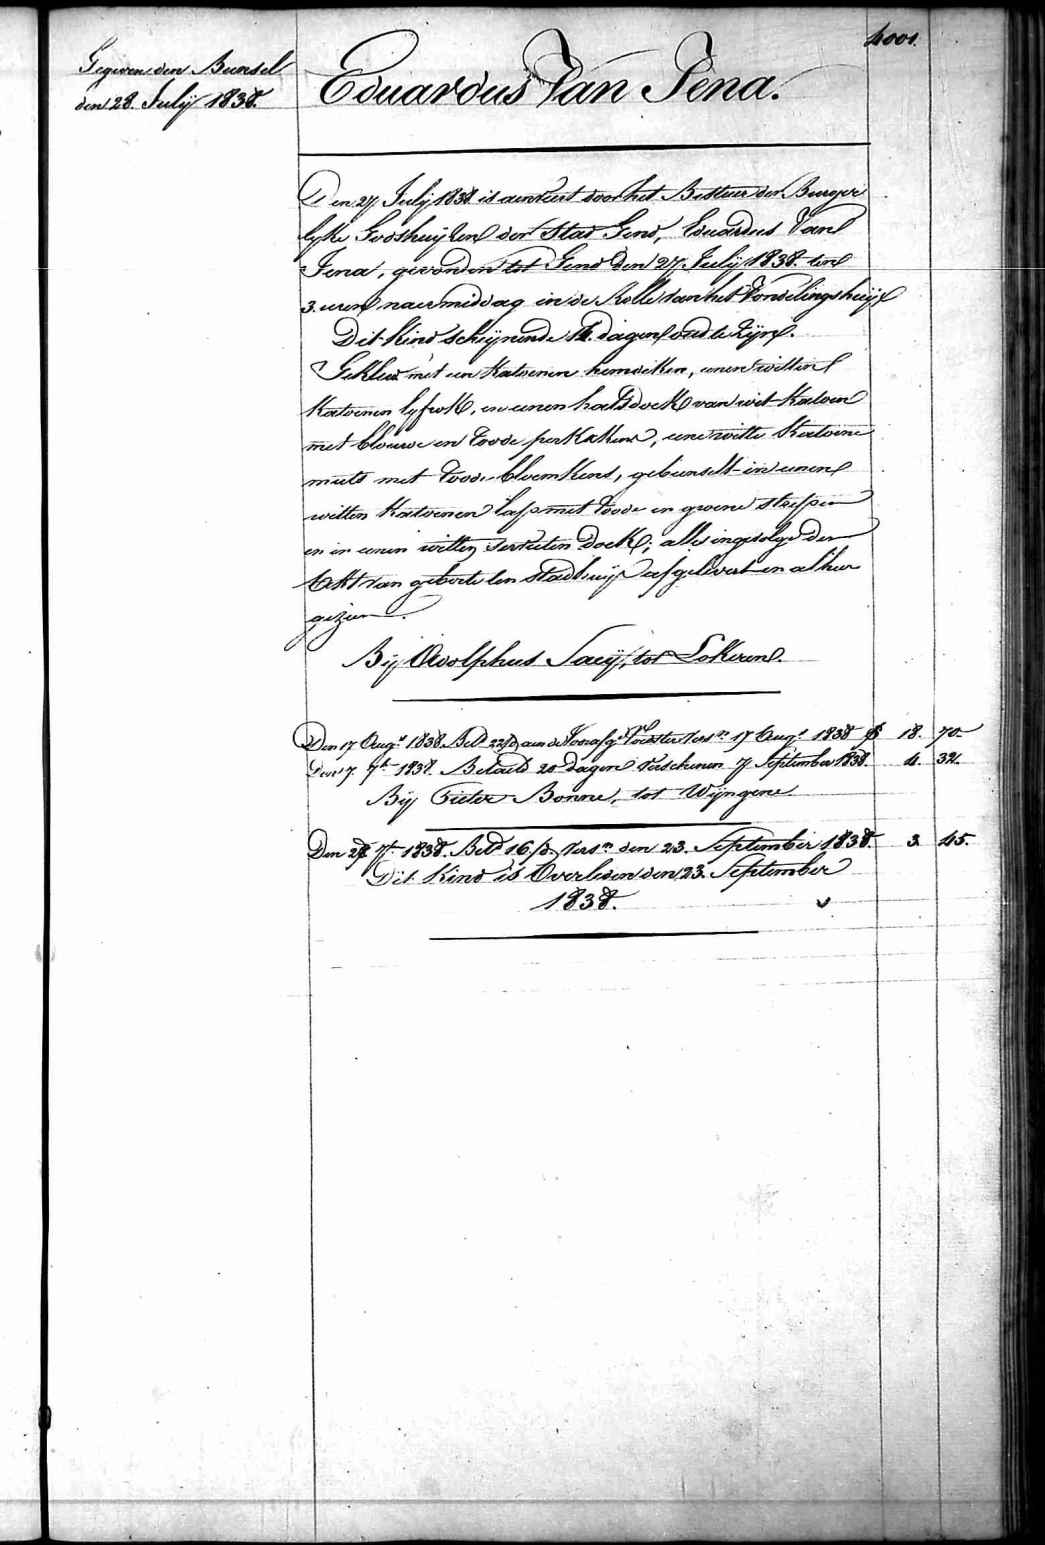 4001.
Gegeven den Bunsel
den 28. Julij 1838.
Eduardus Van Jena.
Den 27 Julij 1838 is aenveert door het Bestuer der Burger
lyke Godshuijzen der Stad Gend, Eduardus Van
Jena, gevonden tot Gend den 27 Julij 1838. ten
3. uren naermiddag in de Rolle van het Vondelingshuijs
Dit kind schijnende 14 dagen oud te zijn.
Gekleed met een Katoenen hemdeken, eenen witten
Katoenen lyfrok, en eenen halsdoek van wit Katoen
met blouwe en roode perkskens, eene witte Katoene
muts met roode bloemkens, gebunselt in eenen
witten Katoenen lap met roode en groene streepen
en in eenen witten servieten doek; alles ingevolge den
Akt van geboorte ten Stadhuijze afgelevert en alhier
gezien.
Bij Adolphus Saeij, tot Lokeren.
Den 17 Aug.t 1838. Bet.d 22 d. aen de Voorafg.e Voedster Vers.n 17 Aug.t 1838 18. 70.
Den 7. 7b 1838. Betaeld 20 dagen verschenen 7 September 1838. 4. 32.
Bij Pieter Bonne, tot Wijngene
Den 28 7b. 1838. Bet.d 16/d. Vers.n den 23. September 1838. 3. 45.
Dit Kind is Overleden den 23. September
1838.